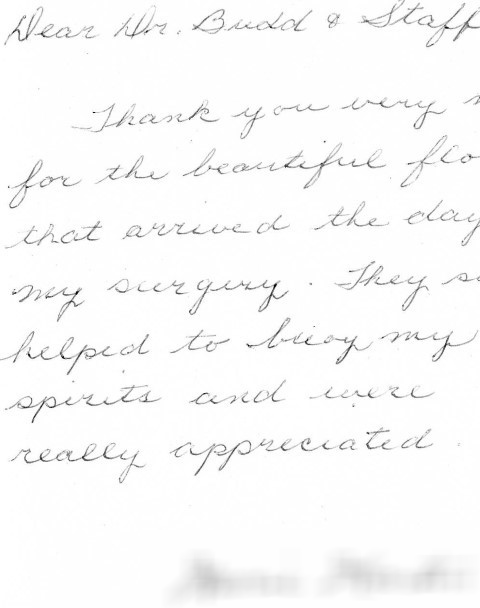 Dear Dr. Budd & Staff
Thank you very
for the beautiful flo
that arrived the day
my surgery. They s
helped to buoy my
spirits and were
really appreciated.